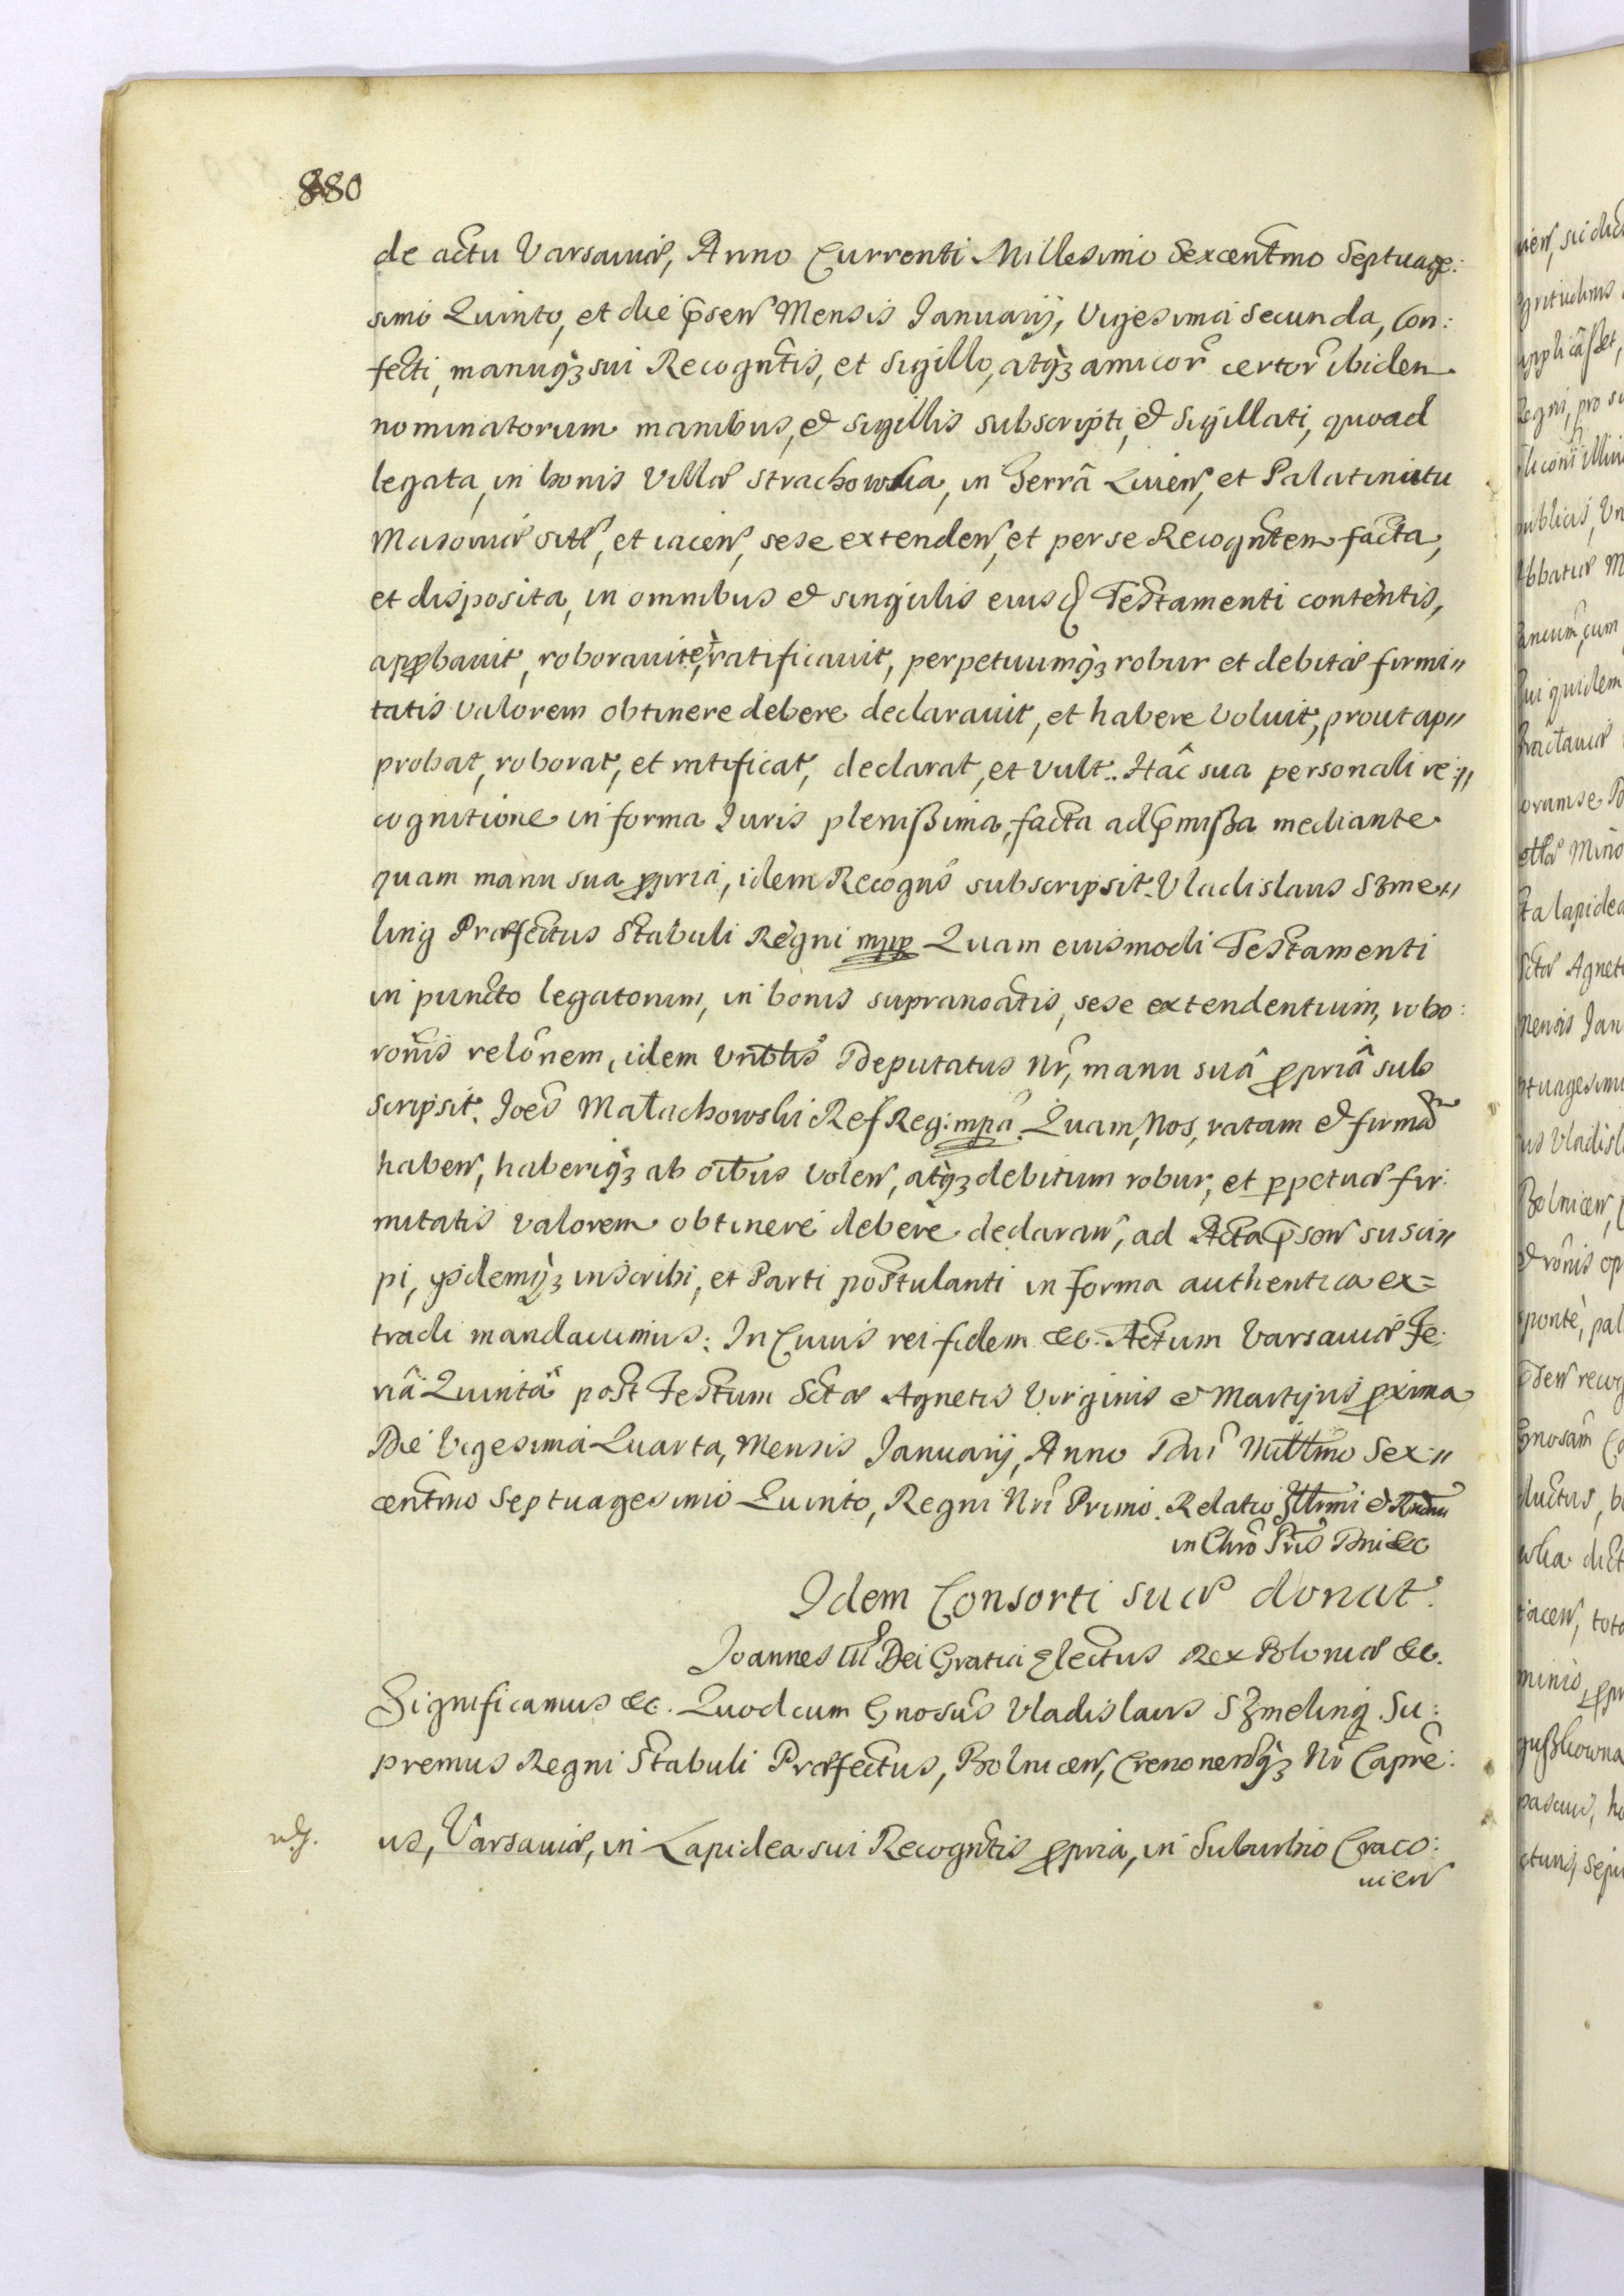 880
de actu Varsaviæ, Anno Currenti Millesimo Sexcentmo Septuage:
simo Quinto, et die p̃sen Mensis Januarij, Vigesima Secunda, Con:
fecti, manuqȝ sui Recogntis, et Sigillo, atqȝ amicor̃ certor̃ ibidem
nominatorum manibus, & sigillis subscripti, & Sigillati, quoad
legata, in bonis Villæ Strachowka, in Terrâ Livien, et Palatinatu
Masoviæ sitt, et iacen, sese extenden, et per se Recognt̃em facta,
et disposita, in omnibus & singulis eiusd Testamenti contentis,
approbavit, roboravit et ratificavit, perpetuumqȝ robur et debitæ firmi〃
tatis valorem obtinere debere declaravit, et habere voluit, prout ap〃
probat, roborat, et ratificat, declarat, et vult. Hâc sua personali re〃
cognitione in forma Juris plenißima, facta ad p̃mißa mediante
quam manu sua ppria, idem Recogns̃ subscripsit. Vladislaus Szme〃
ling Præfectus Stabuli Regni mpp Quam eiusmodi Testamenti
in puncto legatorum, in bonis supranoãtis, sese extendentium, robo:
rom̃is relõnem, idem Vrĩblis Deputatus Nr̃, manu suâ ppriâ sub
scripsit. Joes̃ Małachowski Ref Reg: mpa. Quam, Nos, ratam & firmã
haben, haberiqȝ ab oĩbus volen, atqȝ debitum robur, et ppetuæ fir:
mitatis valorem obtinere debere declaran, ad Acta p̃sen susci〃
pi, ysdemqȝ inscribi, et Parti postulanti in forma authentica ex=
tradi mandavimus: In Cuius rei fidem &c. Actum Varsaviæ Fe:
riâ Quintâ post Festum Sctæ Agnetis Virginis & Martyris pxima
Die Vigesima Quarta, Mensis Januarij, Anno Dni Mill̃mo Sex〃
cent̃mo Septuagesimo Quinto, Regni Nri Primo. Relatio Ill̃rmi & Rndm̃i
in Chrõ Pr̃is Dni &c
Idem Consorti suæ donat.
Joannes III Dei Gratia Electus Rex Poloniæ &c.
Significamus &c. Quod cum Gnosus̃ Vladislaus Szmeling Su:
premus Regni Stabuli Præfectus, Bolnicen, Crenonenqȝ Nr̃ Capr̃e:
us, Varsaviæ, in Lapidea sui Recogntis ppria, in Suburbio Craco:
vien